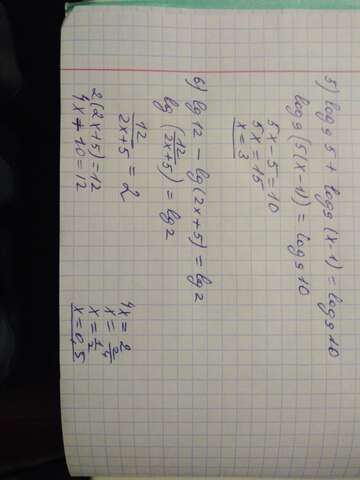 5) log₉ 5 + log₉ (x-1) = log₉ 10
log₉ (5(x-1)) = log₉ 10
5x - 5 = 10
5x = 15
x = 3
6) lg 12 - lg (2x+5) = lg 2
lg (12/(2x+5)) = lg 2
12/(2x+5) = 2
2(2x+5) = 12
4x + 10 = 12
4x = 2
x = 2/4
x = 1/2
x = 0,5